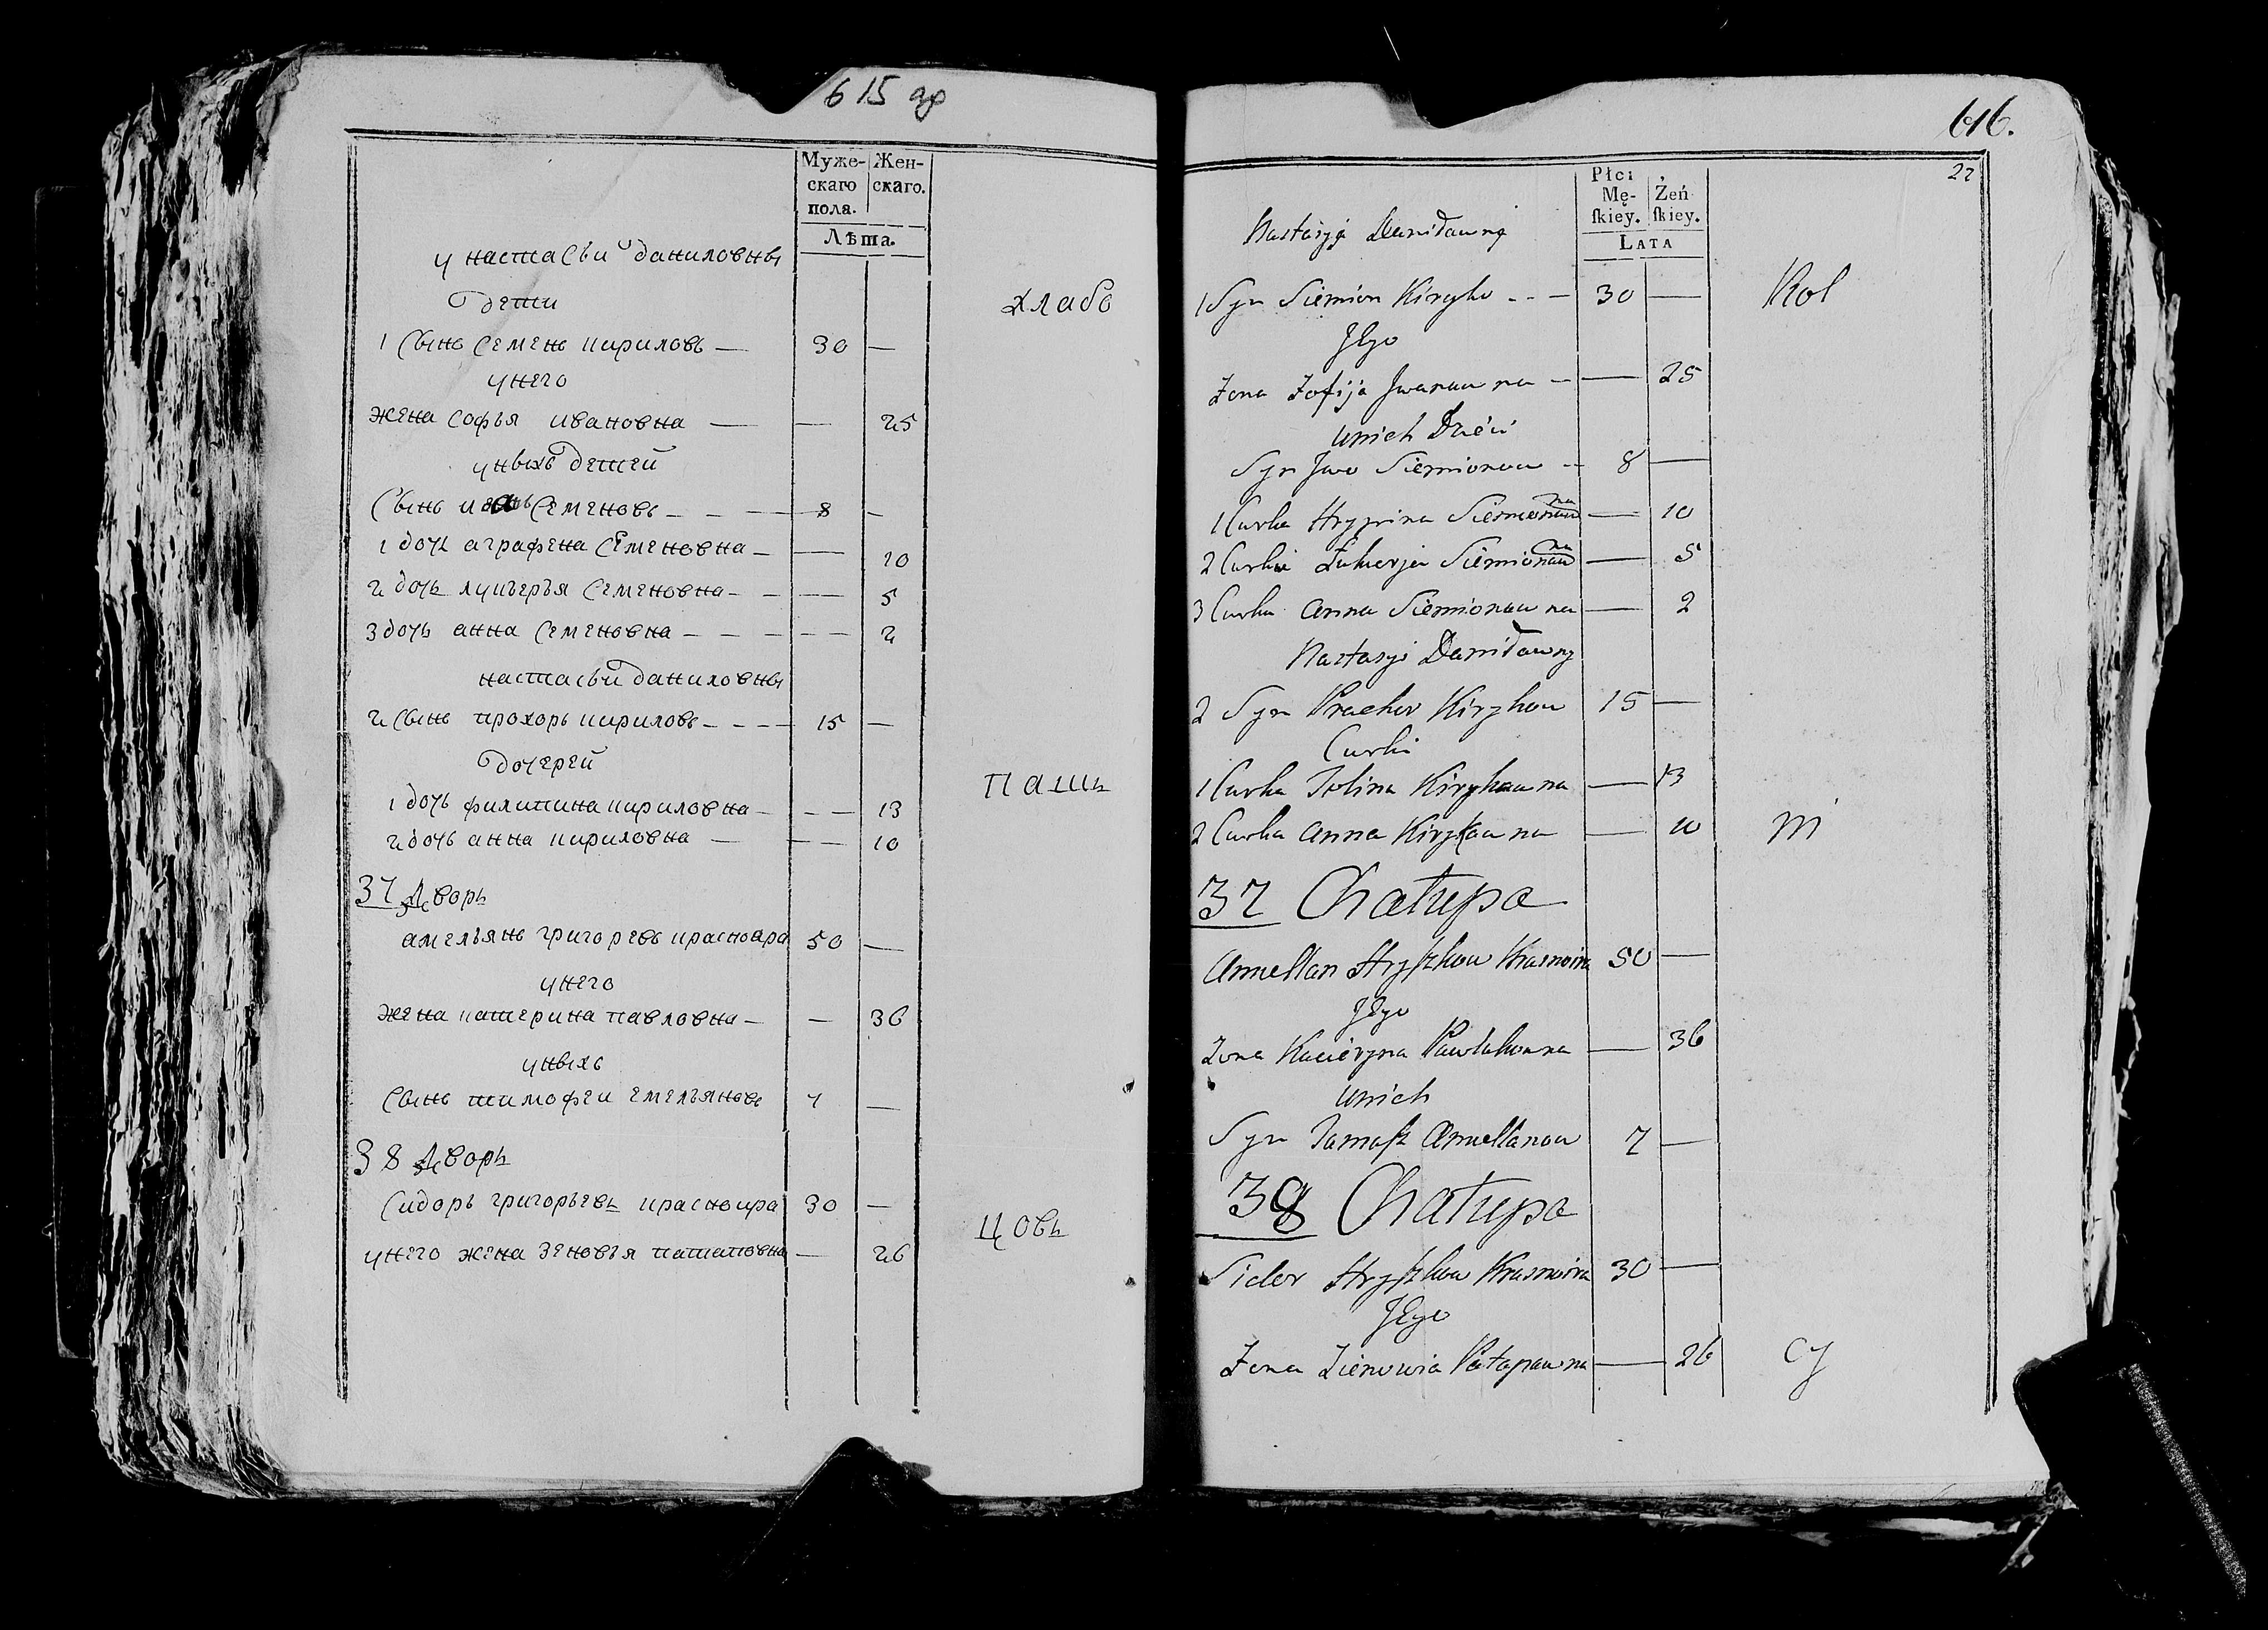 615 об
Муже- Жен-
скаго скаго.
пола.
Лѣта.
у настасьи даниловны
дети
хлабо
1 Сынъ Семенъ кириловъ — 30 —
унего
жена Софья ивановна — — 25
унвихъ детей
Сынъ иванъ Семеновъ - - - 8 -
1 дочь аграфена Семеновна - — 10
2 дочь лукерья Семеновна - - — 5
3 дочь анна Семеновна - - - - - 2
настасьи даниловны
2 Сынъ прохоръ кириловъ - - - 15 —
дочерей
пашъ
1 дочь филипина кириловна - - - 13
2 дочь анна кириловна — - - 10
37 Дворъ
амельянъ григоревъ красноара 50 —
унего
жена катерина павловна — — 36
унвихъ
Сынъ тимофеи емельяновъ 7 —
38 Дворъ
Сидоръ григорьевъ красноира 30 —
цовъ
унего жена зеновья патаповна — 26
616.
22
Płci
Mę- Żeń
ſkiey. ſkiey.
LATA
Nastasyą Daniławną
1 Syn Siemion Kiryko - - - 30 — Kol
Jego
Zona Zofija Jwanauna - - — 25
unich Dzieci
Syn Jwo Siemionow - - 8 —
1 Curka Hrypina Siemionauna — 10
2 Curka Łukierja Siemionauna — 5
3 Curka Anna Siemionauna — 2
Nastasyi Daniławny
2 Syn Prachor Kirykou 15 —
Curki
1 Curka Jolina Kirykauna — 13
2 Curka Anna Kirykauna — 10 m
37 Chatupa
Amellan Hryſzkou Krasnoira 50 —
Jego
Zona Kacieryna Pawlukouna — 36
unich
Syn Tamaſz Amellanou 7 —
38 Chatupa
Sidor Hryſzkou Krasnoira 30 —
Jego
Zona Zienowia Patapauna — 26 cy